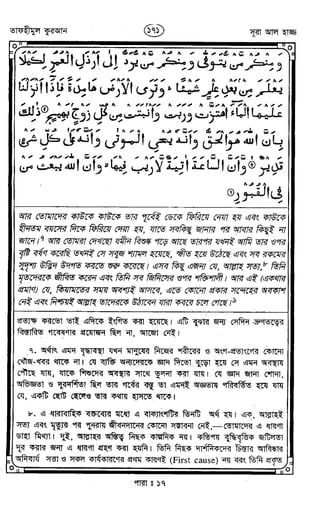 তাফহীমুল কুরআন
১৭১
সূরা আল হাজ্জ
وَمِنْكُمْ مَّنْ يُّتَوَفّٰى وَمِنْكُمْ مَّنْ يُّرَدُّ اِلٰٓى اَرْذَلِ الْعُمُرِ لِكَيْلَا
يَعْلَمَ مِنْۢ بَعْدِ عِلْمٍ شَيْئًا ؕ وَتَرَى الْاَرْضَ هَامِدَةً فَاِذَآ اَنْزَلْنَا
عَلَيْهَا الْمَآءَ اهْتَزَّتْ وَرَبَتْ وَاَنْۢبَتَتْ مِنْ كُلِّ زَوْجٍۢ بَهِيْجٍ ⑤ ذٰلِكَ
بِاَنَّ اللّٰهَ هُوَ الْحَقُّ وَاَنَّهٗ يُحْيِ الْمَوْتٰى وَاَنَّهٗ عَلٰى كُلِّ شَيْءٍ
قَدِيْرٌ ⑥ وَّاَنَّ السَّاعَةَ اٰتِيَةٌ لَّا رَيْبَ فِيْهَا ۙ وَاَنَّ اللّٰهَ يَبْعَثُ مَنْ
فِي الْقُبُوْرِ ⑦
আর তোমাদের কাউকে কাউকে তার পূর্বেই ডেকে ফিরিয়ে নেয়া হয় এবং কাউকে
হীনতম বয়সের দিকে ফিরিয়ে দেয়া হয়, যাতে সবকিছু জানার পর আবার কিছুই না
জানে।৭ আর তোমরা দেখছো যমীন বিশুষ্ক পড়ে আছে তারপর যখনই আমি তার ওপর
বৃষ্টি বর্ষণ করেছি তখনই সে সবুজ শ্যামল হয়েছে, স্ফীত হয়ে উঠেছে এবং সব রকমের
সুদৃশ্য উদ্ভিদ উদগত করতে শুরু করেছে। এসব কিছু এজন্য যে, আল্লাহ সত্য,৮ তিনি
মৃতদেরকে জীবিত করেন এবং তিনি সব জিনিসের ওপর শক্তিশালী। আর এই (একথার
প্রমাণ) যে, কিয়ামতের সময় অবশ্যই আসবে, এতে কোনো প্রকার সন্দেহের অবকাশ
নেই এবং নিশ্চয়ই আল্লাহ তাদেরকে উঠাবেন যারা কবরে চলে গেছে।৯
প্রত্যক্ষ করতো তাই এদিকে ইংগিত করা হয়েছে। এটি বুঝার জন্য সেদিন ভ্রূণতত্বের
বিস্তারিত গবেষণার প্রয়োজন ছিল না, আজো নেই।
৭. অর্থাৎ এমন বৃদ্ধাবস্থা যখন মানুষের নিজের শরীরের ও অংগ-প্রত্যংগের কোনো
খোঁজ-খবর থাকে না। যে ব্যক্তি অন্যদেরকে জ্ঞান দিতো বুড়ো হয়ে সে এমন অবস্থায়
পৌঁছে যায়, যাকে শিশুদের অবস্থার সাথে তুলনা করা যায়। যে জ্ঞান জানা শোনা,
অভিজ্ঞতা ও দূরদর্শিতা ছিল তার গর্বের বস্তু তা এমনই অজ্ঞতায় পরিবর্তিত হয়ে যায়
যে, একটি ছোট ছেলেও তার কথায় হাসতে থাকে।
৮. এ ধারাবাহিক বক্তব্যের মধ্যে এ বাক্যাংশটির তিনটি অর্থ হয়। এক, আল্লাহই
সত্য এবং মৃত্যুর পর পুনরায় জীবনদানের কোনো সম্ভাবনা নেই,—তোমাদের এ ধারণা
ডাহা মিথ্যা। দুই, আল্লাহর অস্তিত্ব নিছক কাল্পনিক নয়। কতিপয় বুদ্ধিবৃত্তিক জটিলতা
দূর করার জন্য এ ধারণা গ্রহণ করা হয়নি। তিনি নিছক দার্শনিকদের চিন্তার আবিষ্কার
অনিবার্য সত্তা ও সকল কার্যকারণের প্রথম কারণই (First cause) নয় বরং তিনি প্রকৃত
পারা : ১৭